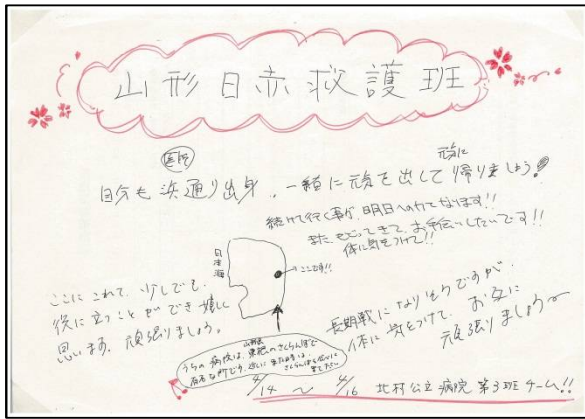 山形日赤救護班
医師
自分も浜通り出身、一緒に元気を出して帰りましょう!
元気に
続けて行く事が明日への力になります!!
また もどってきて、お手伝いしたいです!!
体に気をつけて!!
日本海
ここです!!
ここに これて、少しでも、
役に立つことができ嬉しく
思います。頑張りましょう。
長期戦になりそうですが、
体に気をつけて、お互いに
頑張りましょう〜
山形県
うちの病院は、東根のさくらんぼで
有名な所です。
さくらんぼ
4/14 〜 4/16 北村公立病院 第3班チーム!!